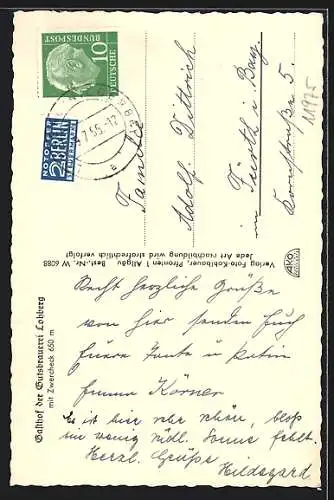 10
DEUTSCHE
BUNDESPOST
NOTOPFER
2 BERLIN
STEUERMARKE
7.55.-12
a
Familie
Adolf Dittrich
in Fürth i. Bay
Kornstraße 5
11975
Gasthof der Gutsbrauerei Lobberg
mit Zwercheck 650 m
Verlag Foto-Kohlbauer, Pfronten 1 Allgäu Best.-Nr. W 6088
Jede Art Nachbildung wird strafrechtlich verfolgt!
AKO
Recht herzliche Grüße
von hier senden Euch
Eure Tante u. Patin
Emma Körner
Es ist hier sehr schön, bloß
ein wenig südl. Sonne fehlt.
Herzl. Grüße
Hildegard